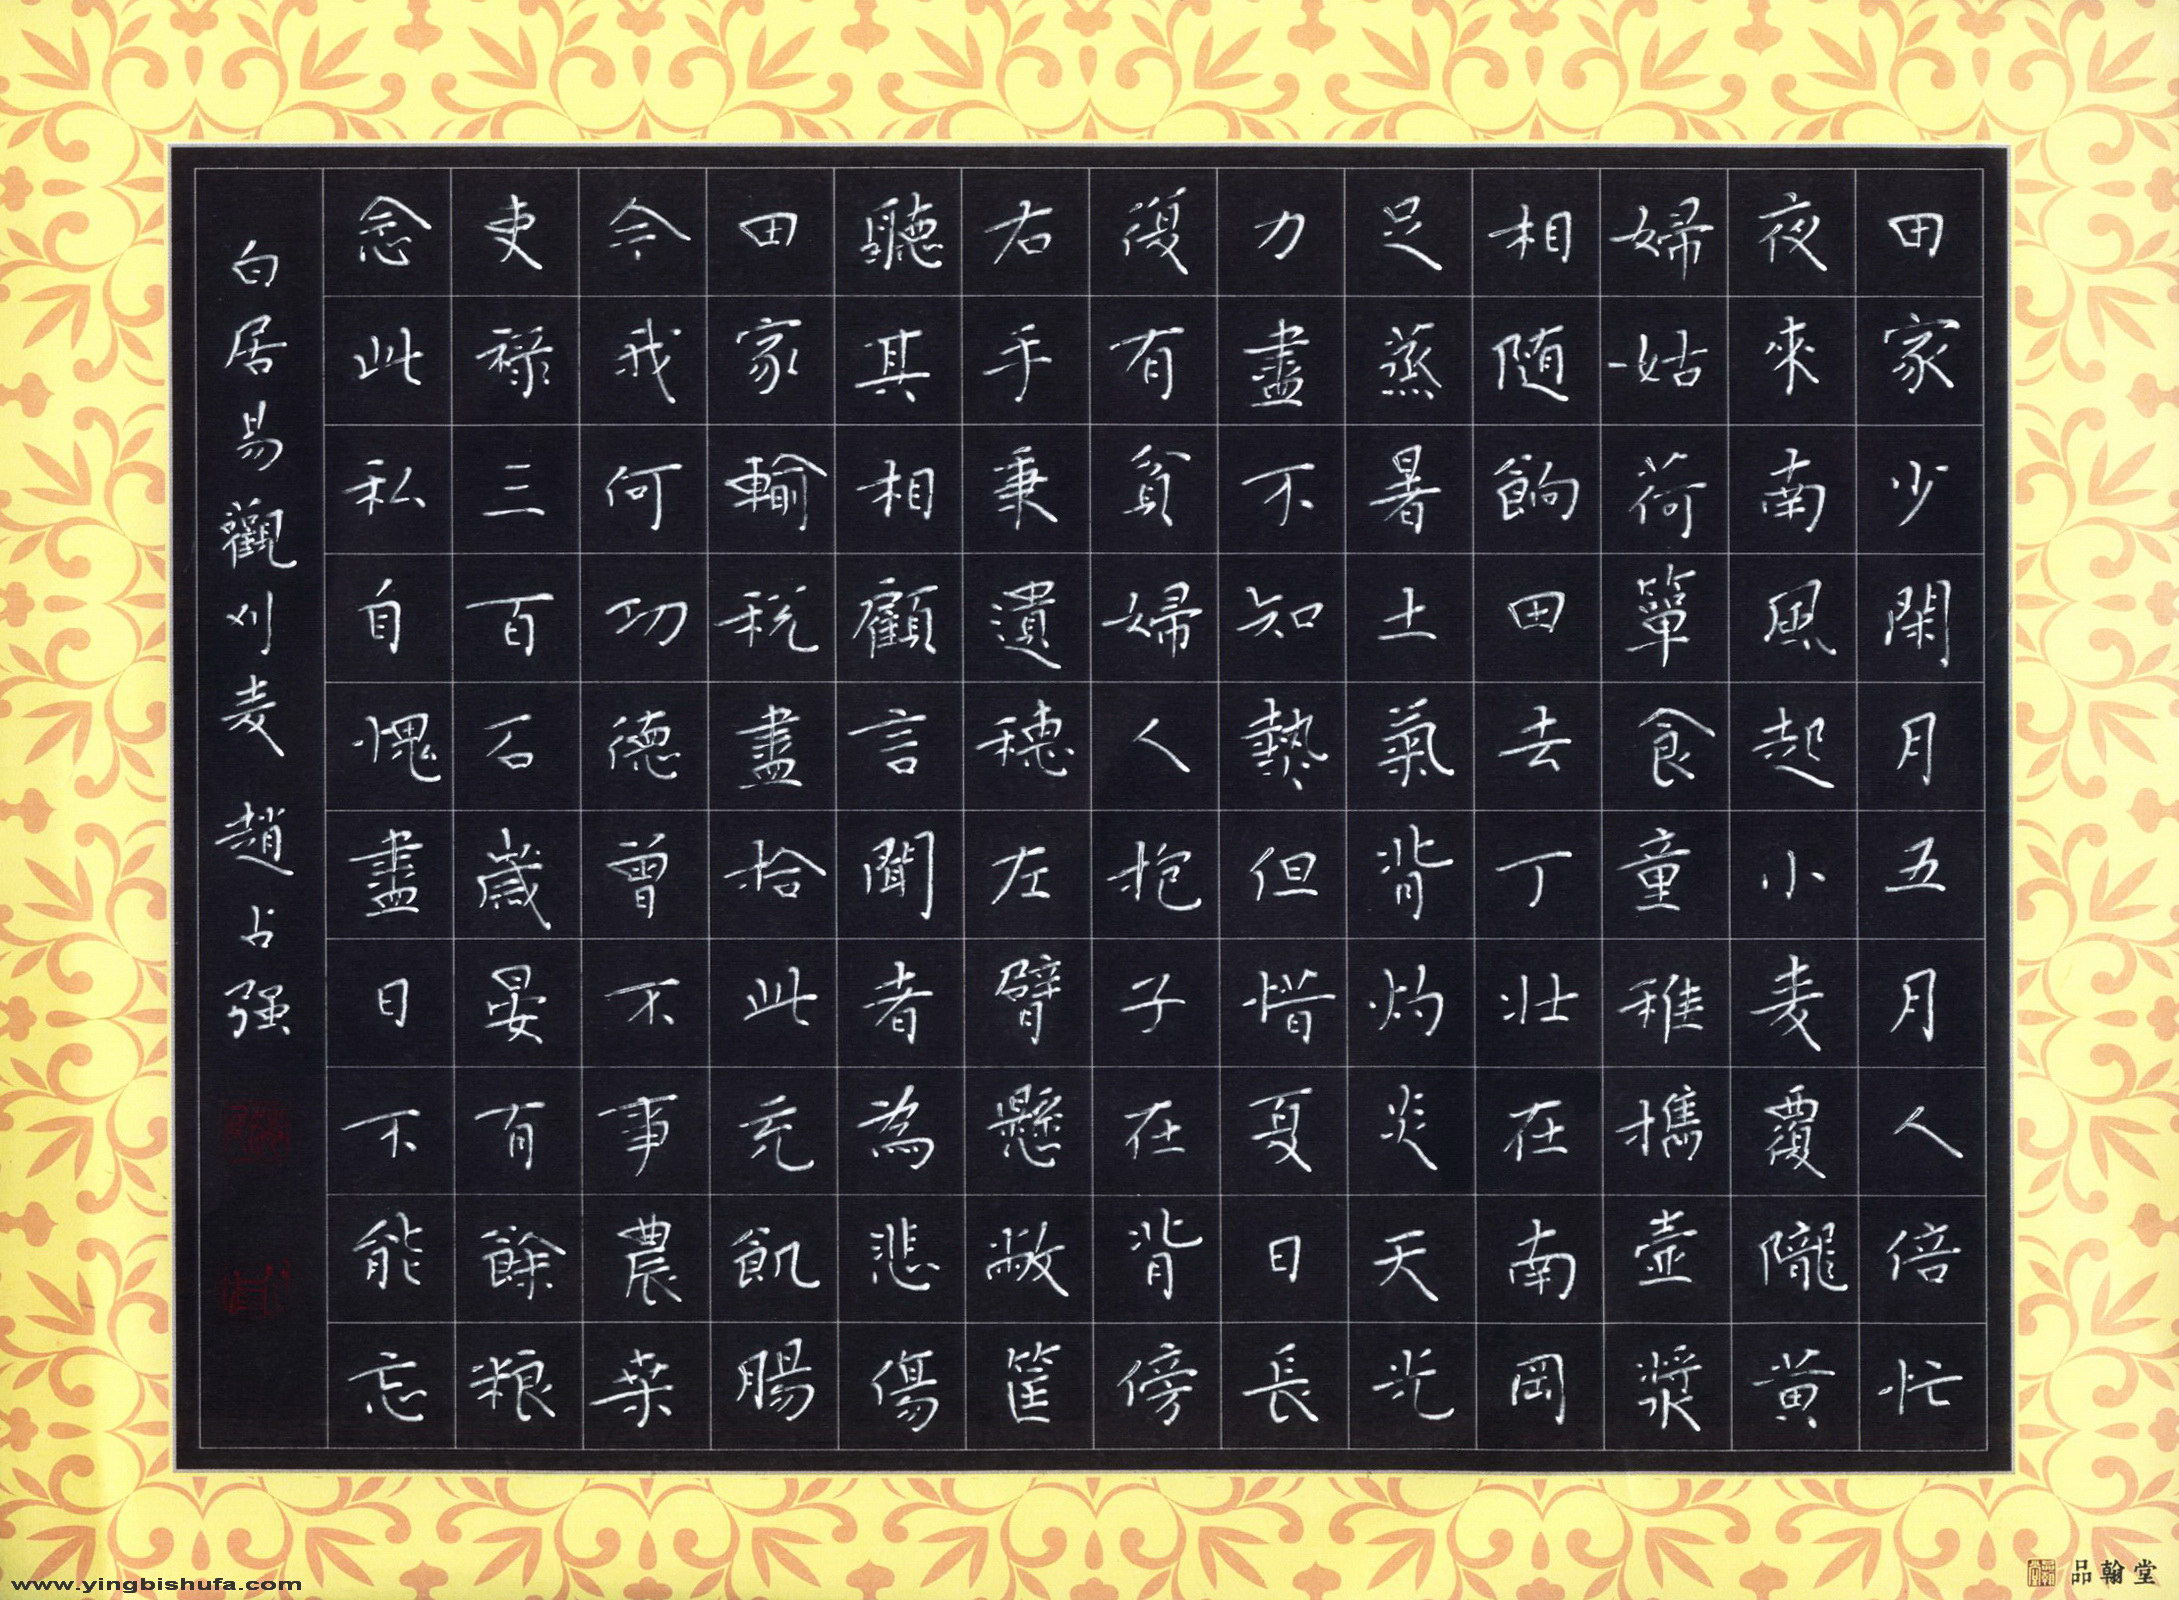 田家少閑月五月人倍忙
夜來南風起小麦覆隴黄
婦姑荷簞食童稚攜壺漿
相随餉田去丁壯在南岡
足蒸暑土氣背灼炎天光
力盡不知熱但惜夏日長
復有貧婦人抱子在背傍
右手秉遺穗左臂懸敝筐
聽其相顧言聞者為悲傷
田家輸税盡拾此充飢腸
今我何功德曾不事農桒
吏禄三百石歲晏有餘粮
念此私自愧盡日不能忘
白居易觀刈麦 趙占强
www.yingbishufa.com
品翰堂